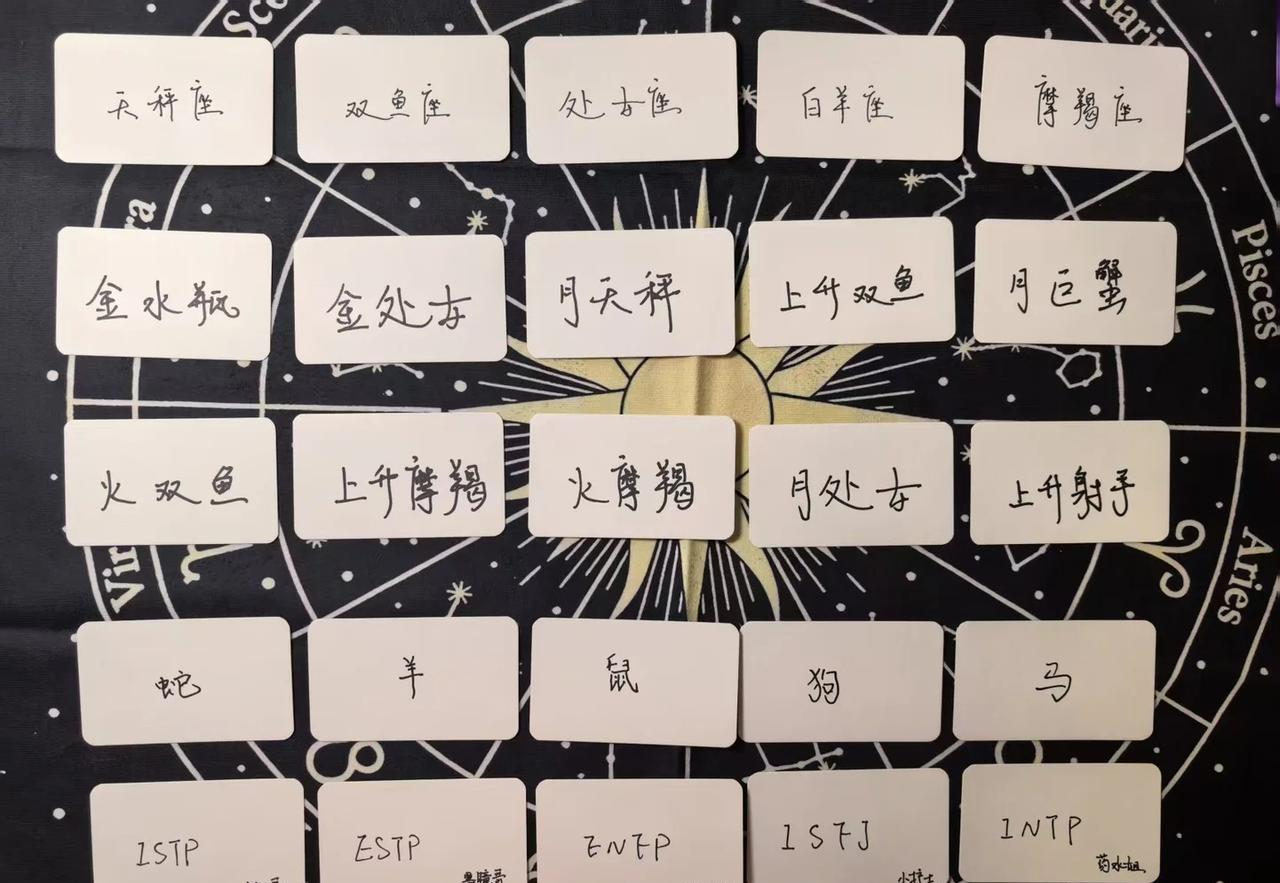 天秤座 双鱼座 处女座 白羊座 摩羯座
金水瓶 金处女 月天秤 上升双鱼 月巨蟹
火双鱼 上升摩羯 火摩羯 月处女 上升射手
蛇 羊 鼠 狗 马
ISTP ESTP ENFP ISFJ INTP
药水姐
Pisces
Aries